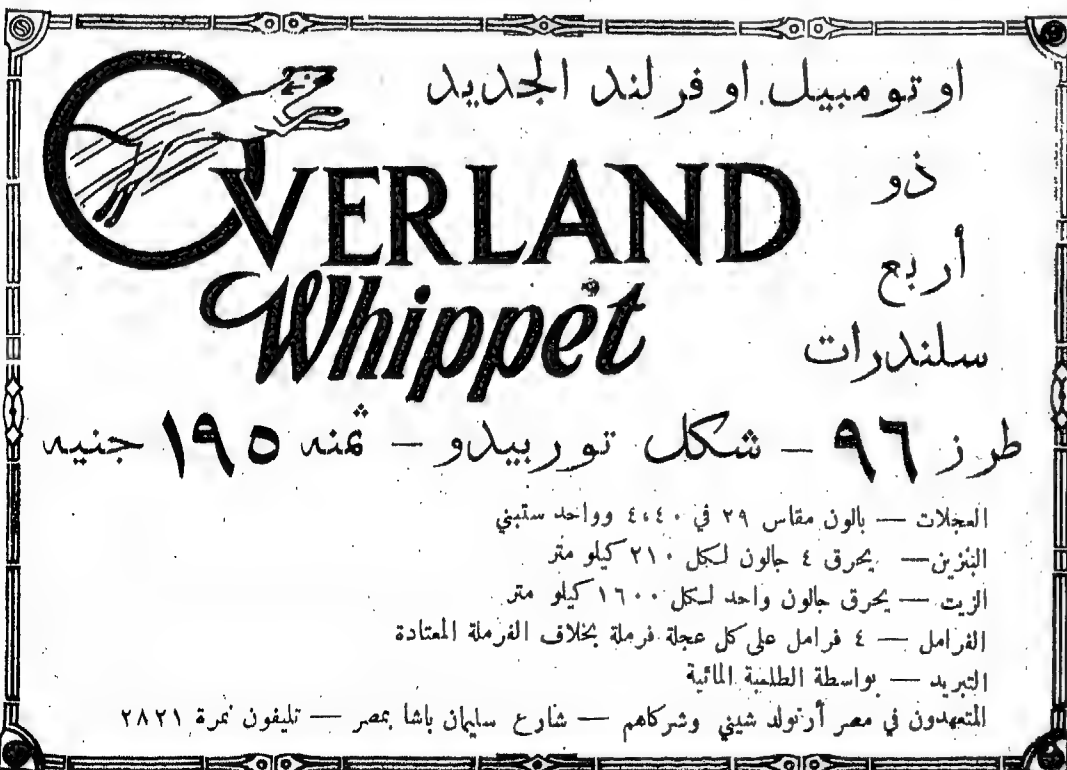 اوتومبيل اوفرلند الجديد
OVERLAND
Whippet
ذو
أربع
سلندرات
طرز ٩٦ — شكل توربيدو — ثمنه ١٩٥ جنيه
العجلات — بالون مقاس ٢٩ في ٤،٤٠ وواحد ستبني
البنزين — يحرق ٤ جالون لكل ٢١٠ كيلو متر
الزيت — يحرق جالون واحد لكل ١٦٠٠ كيلو متر
الفرامل — ٤ فرامل على كل عجلة فرملة بخلاف الفرملة المعتادة
التبريد — بواسطة الطلمبة المائية
المتعهدون في مصر أرنولد شيني وشركاهم — شارع سليمان باشا بمصر — تليفون نمرة ٢٨٢١